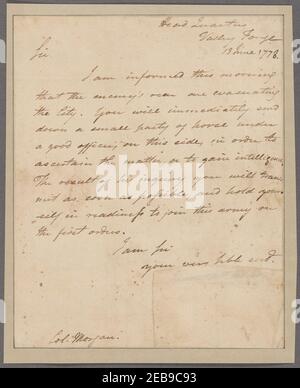 Head Quarters
Valley Forge
Sir
18 June 1778.
I am informed this morning
that the enemy's rear are evacuating
the City. You will immediately send
down a small party of horse under
a good officer, on this side, in order to
ascertain the matter or to gain intelligence.
The result of his inquiry you will trans-
mit as soon as possible, and hold your-
self in readiness to join this army on
the first orders.
I am Sir
your very hble servt.
Col. Morgan.
alamy
Image ID: 2EB9C93
www.alamy.com